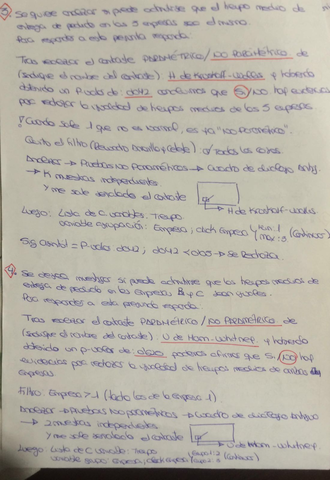 3) Se quiere analizar si puede admitirse que el tiempo medio de
entrega de pedido en las 5 empresas sea el mismo.
Para responder a esta pregunta responda.
Tras realizar el contraste PARAMÉTRICO/NO PARAMÉTRICO de
(indique el nombre del contraste). H de Kruskall-Wallis y habiendo
obtenido un P-valor de: 0'042 concluimos que SI/NO hay evidencias
para rechazar la igualdad de tiempos medios de las 5 empresas
Cuando sale 1 que no es normal, es ya "no paramétrico".
Quito el filtro
Analizar → Pruebas no paramétricas → Cuadro de diálogo Antiguo
→ K muestras independientes.
Y me sale señalado el contraste
→ H de Kruskall-Wallis
Luego: Lista de C. variables: Tiempo
variable agrupación: Empresa; click Empresa (Continuar)
Sig asintót = P-valor 0'042; 0'042 < 0'05 → Se Rechaza.
4) Se desea investigar si puede admitirse que los tiempos medios de
entrega de pedido en las Empresas B y C sean iguales.
Para responder a esta pregunta responda.
Tras realizar el contraste PARAMÉTRICO/NO PARAMÉTRICO de
(indique el nombre del contraste). U de Mann-Whitney y habiendo
obtenido un p-valor de podemos afirmar que SI/NO hay
evidencias para rechazar la igualdad de tiempos medios de ambas
empresas
Analizar → Pruebas no paramétricas → Cuadro de diálogo Antiguo
→ 2 muestras independientes
Y me sale señalado el contraste
→ U de Mann-Whitney.
Luego: Lista de C variable: Tiempo
variable grupo: Empresa; click Empresa (Continuar)